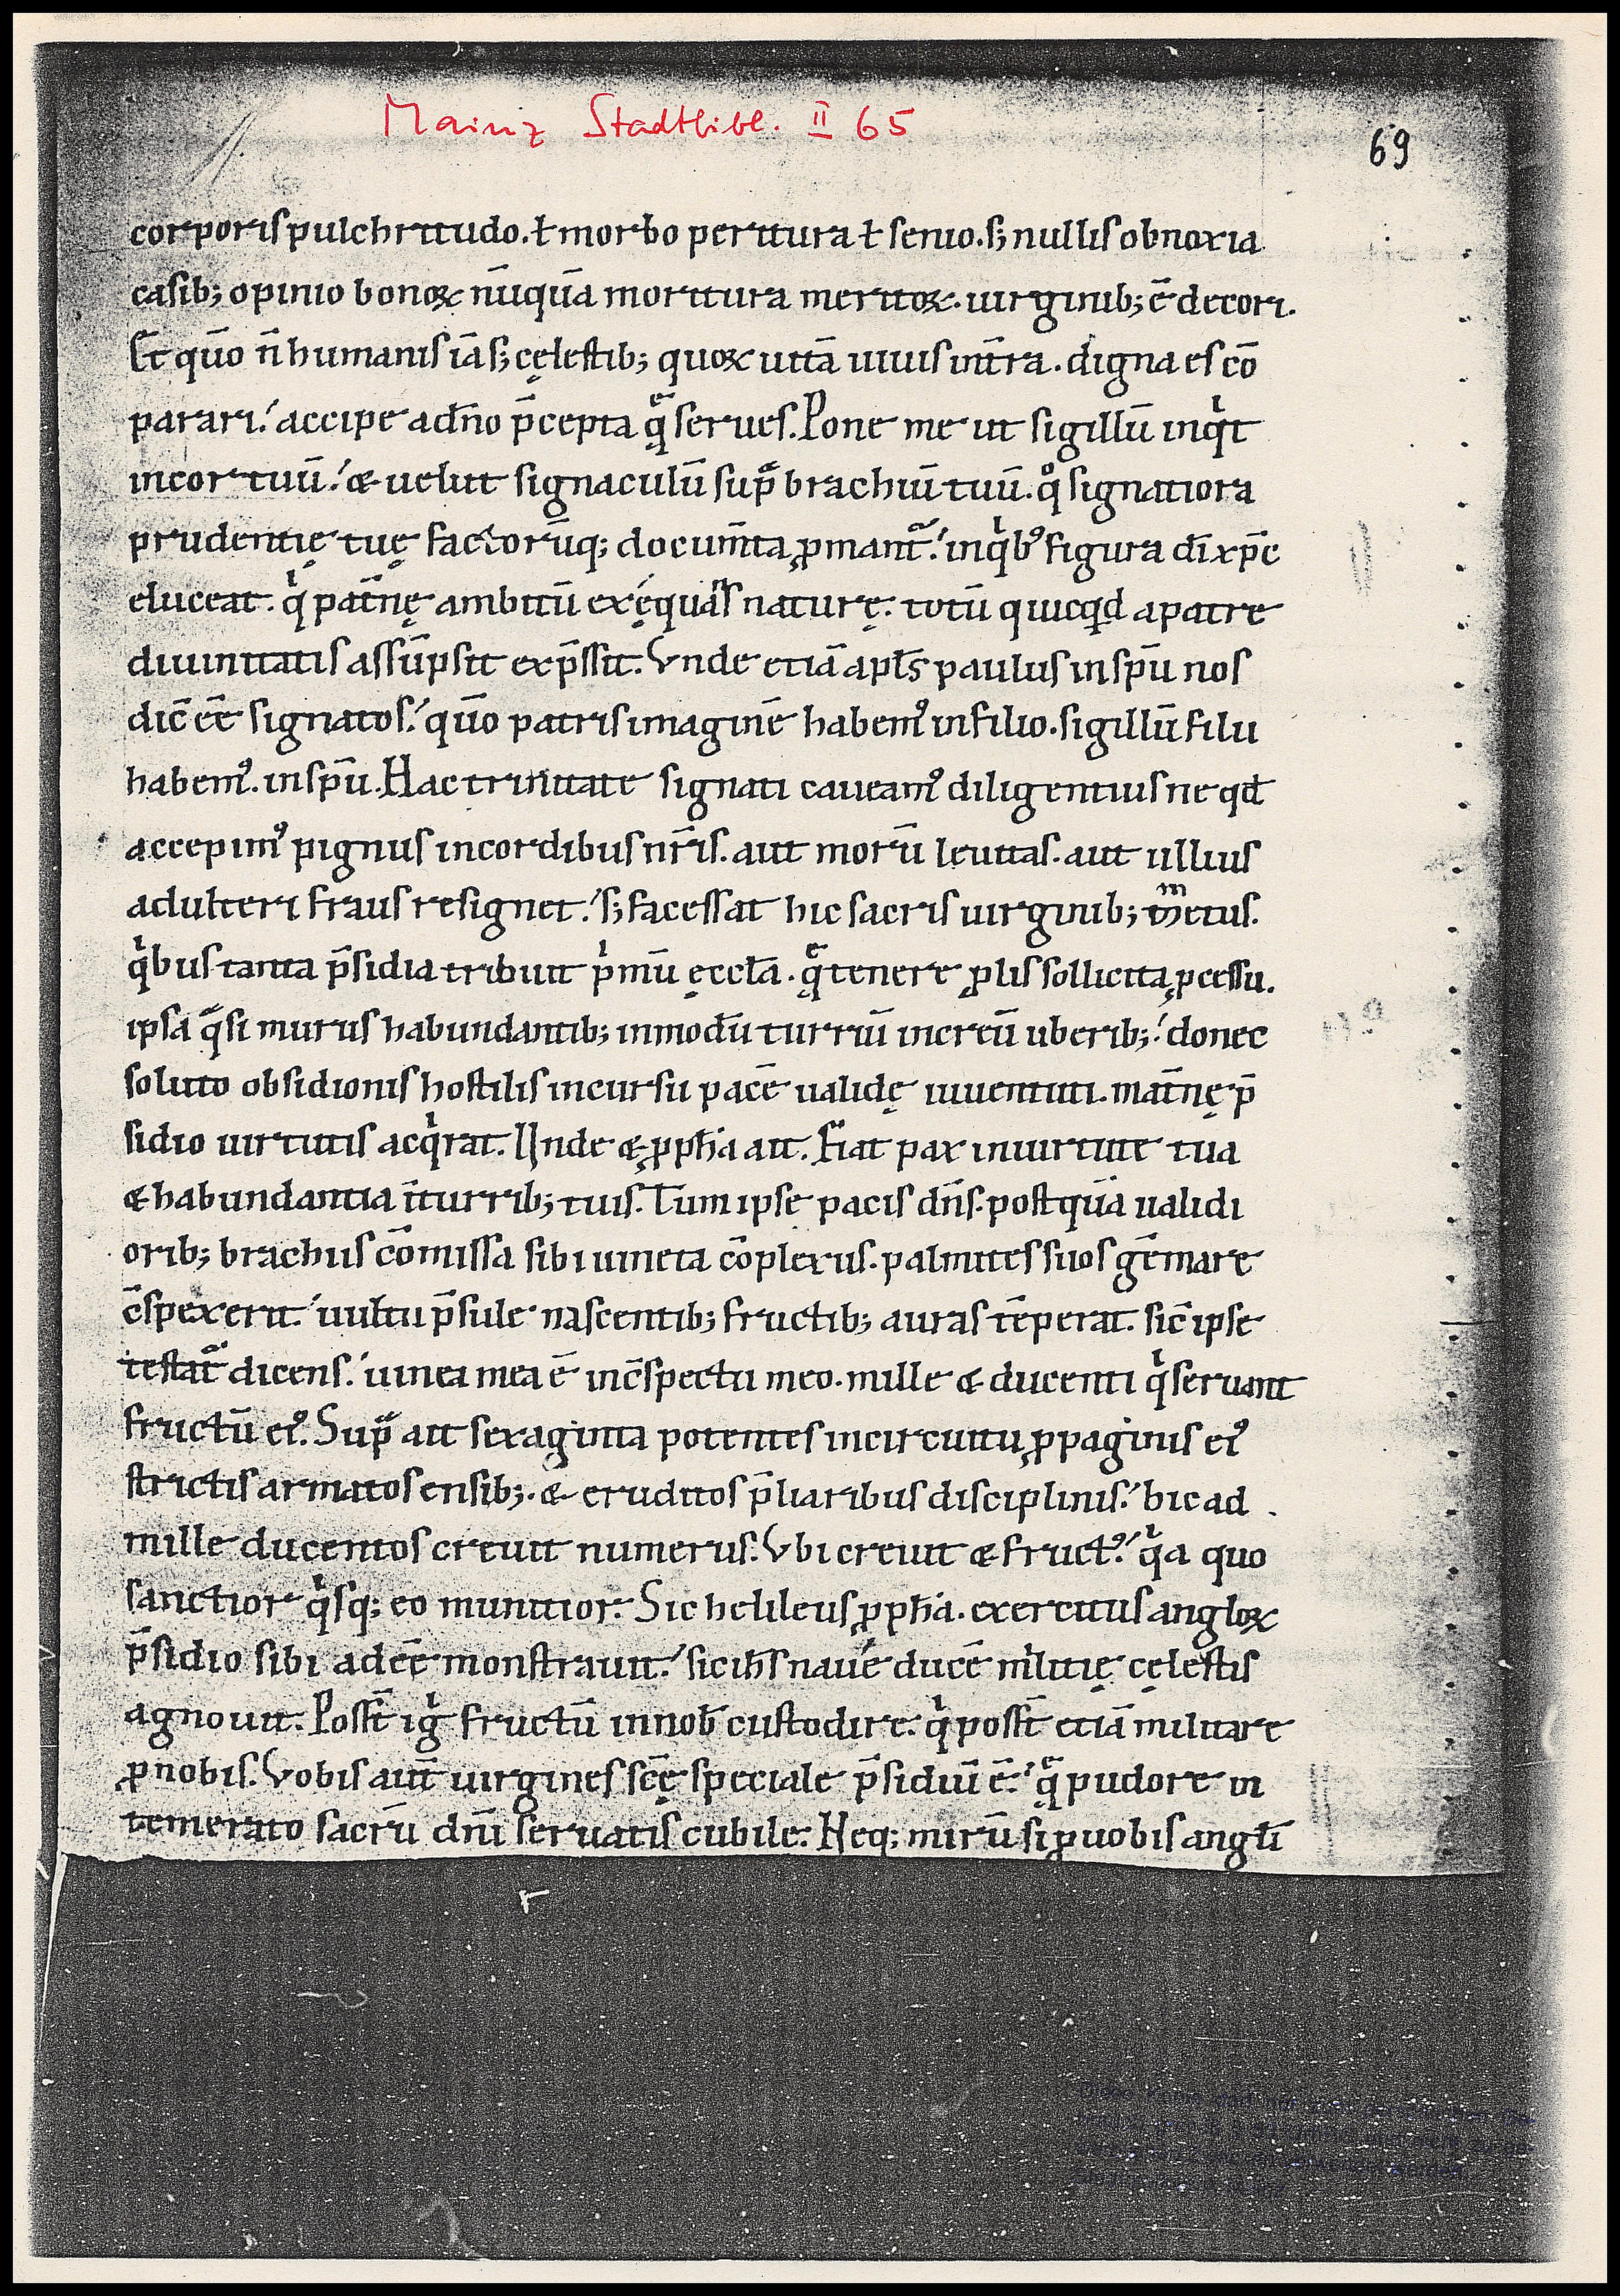 Mainz Stadtbibl. II 65
69
corporis pulchritudo. ł morbo peritura ł senio. s; nullis obnoxia
casib; opinio bonoꝝ nūquā moritura meritoꝝ. uirginib; ē decori.
Et quō n̄ humanis iā s; cęlestib; quoꝝ uitā uiuis int̄ra. digna es cō
parari. accipe a dn̄o p̄cepta q̨̄ serues. Pone me ut sigillū inqͥt
in cor tuū. & uelut signaculū sup̄ brachiū tuū. qͦ signatiora
prudentię tuę factorūq; docum̄ta ꝓmant᷑. in qͥbꝰ figura dī xp̄c
eluceat. qͥ pat̄nę ambitū exęquās naturę. totū quicqd a patre
diuinitatis assūpsit exp̄ssit. Vnde etiā apl̄s paulus in sp̄u nos
dic̄ eē signatos. quō patris imaginē habemꝰ in filio. sigillū filii
habemꝰ. in sp̄u. Hac trinitate signati caueamꝰ diligentius ne qd̄
accepimꝰ pignus in cordibus nr̄is. aut morū leuitas. aut ullius
adulteri fraus resignet. s; facessat hic sacris uirginib; metus.
qͥbus tanta p̄sidia tribuit pͥmū ęccl̄a. q̨̄ tenerę ꝓlis sollicita ꝓcessu.
ipsa qͣsi murus habundantib; in modū turriū increū uberib;. donec
soluto obsidionis hostilis incursu pacē ualidę iuuentuti. mat̄nę p̄
sidio uirtutis acqͥrat. Unde & ꝓph̄ia ait. Fiat pax in uirtute tua
& habundantia īturrib; tuis. Tum ipse pacis dn̄s. postquā ualidi
orib; brachiis cōmissa sibi uineta cōplexus. palmites suos gēmare
c̄spexerit. uultu p̄sule nascentib; fructib; auras tēperat. sic̄ ipse
testat᷑ dicens. uinea mea ē in c̄spectu meo. mille & ducenti qͥ seruant
fructū eiꝰ. Supͣ ait sexaginta potentes in circuitu ꝓpaginis eiꝰ
strictis armatos ensib;. & eruditos p̄liaribus disciplinis. hic ad
mille ducentos creuit numerus. Vbi creuit & fructꝰ. qͥa quo
sanctior qͥsq; eo munitior. Sic heliseus ꝓph̄a. exercitus angloꝝ
p̄sidio sibi adeē monstrauit. sic ih̄s naue ducē militię cęlestis
agnouit. Posst̄ igͥ fructū in nob̄ custodire. qͥ posst̄ etiā militare
ꝓ nobis. Vobis aut̄ uirgines scę̄ speciale p̄sidiū ē. q̨̄ pudore in
temerato sacrū dn̄i seruatis cubile. Neq; mirū si ꝓ uobis angl̄i